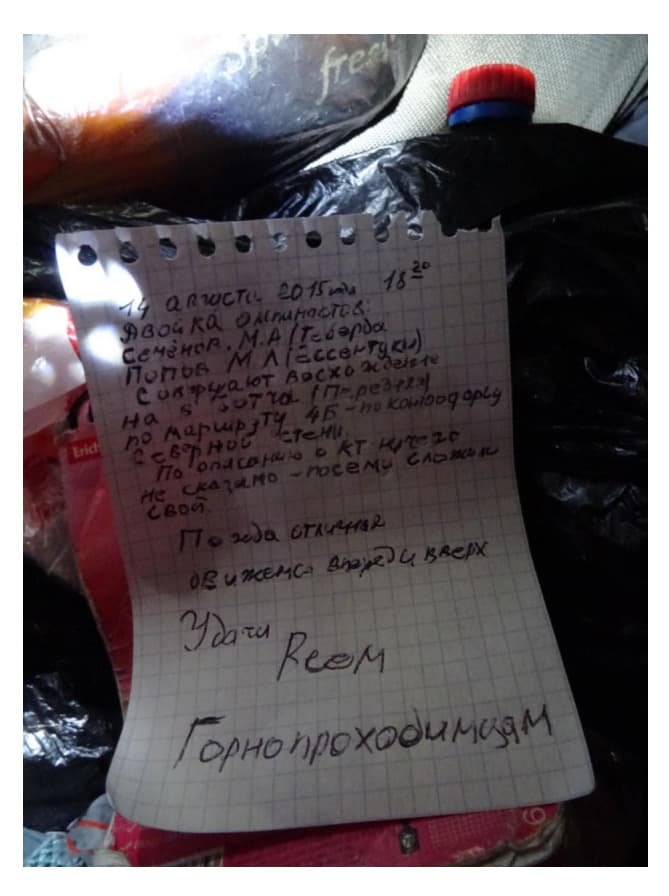 fresh
14 августа 2015 года 18 20
Двойка альпинистов:
Семёнов. М.А (Теберда
Попов М.Л (Ессентуки)
Совершают восхождение
на
по маршруту 4Б - по контрфорсу
северной стены.
По описанию о КТ ничего
не сказано - посему сложили
свой.
Погода отличная
движемся вперед и вверх
Удачи
Всем
Горнопроходимцам
Erich